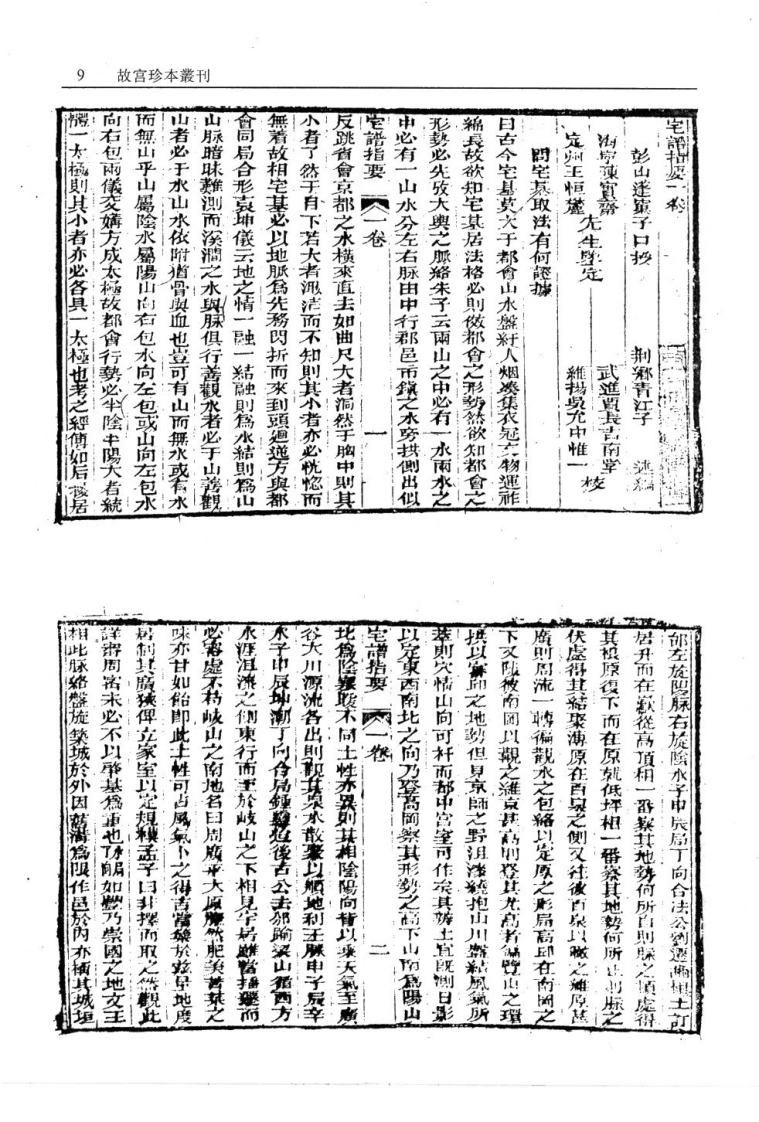 9 故宫珍本叢刊
宅譜指要一卷
彭山逐窠子口抄 荆鄉青江子
海寧陳實齋
定州王恒麓 先生鑒定
武進賈長吉南掌
維揚吳允中惟一 校
問宅基取法有何證據
曰古今宅基莫大于都會山水盤紆人烟湊集衣冠文物運祚
綿長故欲知宅基居法格必則傚都會之形勢然欲知都會之
形勢必先攷大輿之脈絡朱子云兩山之中必有一水兩水之
中必有一山水分左右脈由中行郡邑市鎮之水旁拱側出似
宅譜指要 一卷 一
反跳省會京都之水橫來直去如曲尺大者洞然于胸中則其
小者了然于目下若大者渺茫而不知則其小者亦必恍惚而
無着故相宅基必以地脈爲先務閃折而來到頭迴遶方與都
會同局合形袁坤儀云地之情一融一結融則爲水結則爲山
山脈暗昧難測而溪澗之水與脈俱行善觀水者必于山善觀
山者必于水山水依附猶骨與血也豈可有山而無水或有水
而無山乎山屬陰水屬陽山向右包水向左包或山向左包水
向右包兩儀交媾方成太極故都會行勢必半陰半陽大者統
體一太極則其小者亦必各具一太極也考之經傳如后稷居
邰左旋陽脈右旋陰水子申辰局丁向合法公劉遷豳相土訂
居升而在巘從高頂相一番察其地勢何所自則脈之頂處得
其根原復下而在原就低坪相一番察其地勢何所止則脈之
伏處得其結聚溥原在百泉之側又往彼百泉以瞰之雖原甚
廣則周流一轉徧觀水之包絡以定原之形局高卽在南岡之
下又陟彼南岡以觀之雖京甚高則登其尤高者徧覽山之環
拱以審向之地勢但見京師之野沮漆繞抱山川盤結風氣所
萃則穴情山向可扞而都中宮室可作定其勢土宜旣測日影
以定東西南北之向乃登高岡察其形勢之高下山南爲陽山
宅譜指要 一卷 二
北爲陰寒暖不同土性亦異則其相陰陽向背以乘天氣至廣
谷大川源流各出則觀其泉水散聚以順地利壬脈申子辰辛
水子申辰坤潮丁向合局 後古公去邠踰梁山循西方
水涯沮漆之側東行而至於岐山之下相見宇居雖嘗 而
必審處不苟岐山之南地名曰周廣平大原膴然肥美菁菜之
味亦甘如飴卽此土性可占風氣卜之得吉當築於茲量地度
居制其廣狹俾立家室以定規模孟子曰非擇而取之然觀此
詳審周密未必不以肇基爲重也 如豐乃崇國之地文王
相此脈絡盤旋築城於外因舊溝爲限作邑於內亦稱其城垣